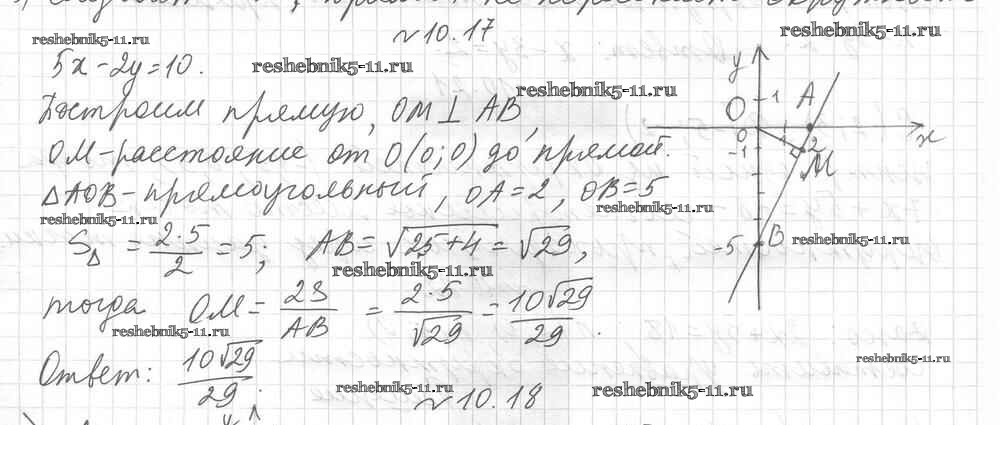 №10.17
reshebnik5-11.ru
reshebnik5-11.ru
5x-2y=10.
reshebnik5-11.ru
reshebnik5-11.ru
Построим прямую, OM⊥AB,
OM-расстояние от O(0;0) до прямой.
△AOB-прямоугольный, OA=2, OB=5
reshebnik5-11.ru
reshebnik5-11.ru
S△ = 2·5/2 = 5; AB= √25+4 = √29,
reshebnik5-11.ru
тогда OM = 2S/AB = 2·5/√29 = 10√29/29.
reshebnik5-11.ru
Ответ: 10√29/29.
reshebnik5-11.ru
reshebnik5-11.ru
№10.18
y
1
A
O
0
2
x
-1
M
-5
B
reshebnik5-11.ru
reshebnik5-11.ru
y